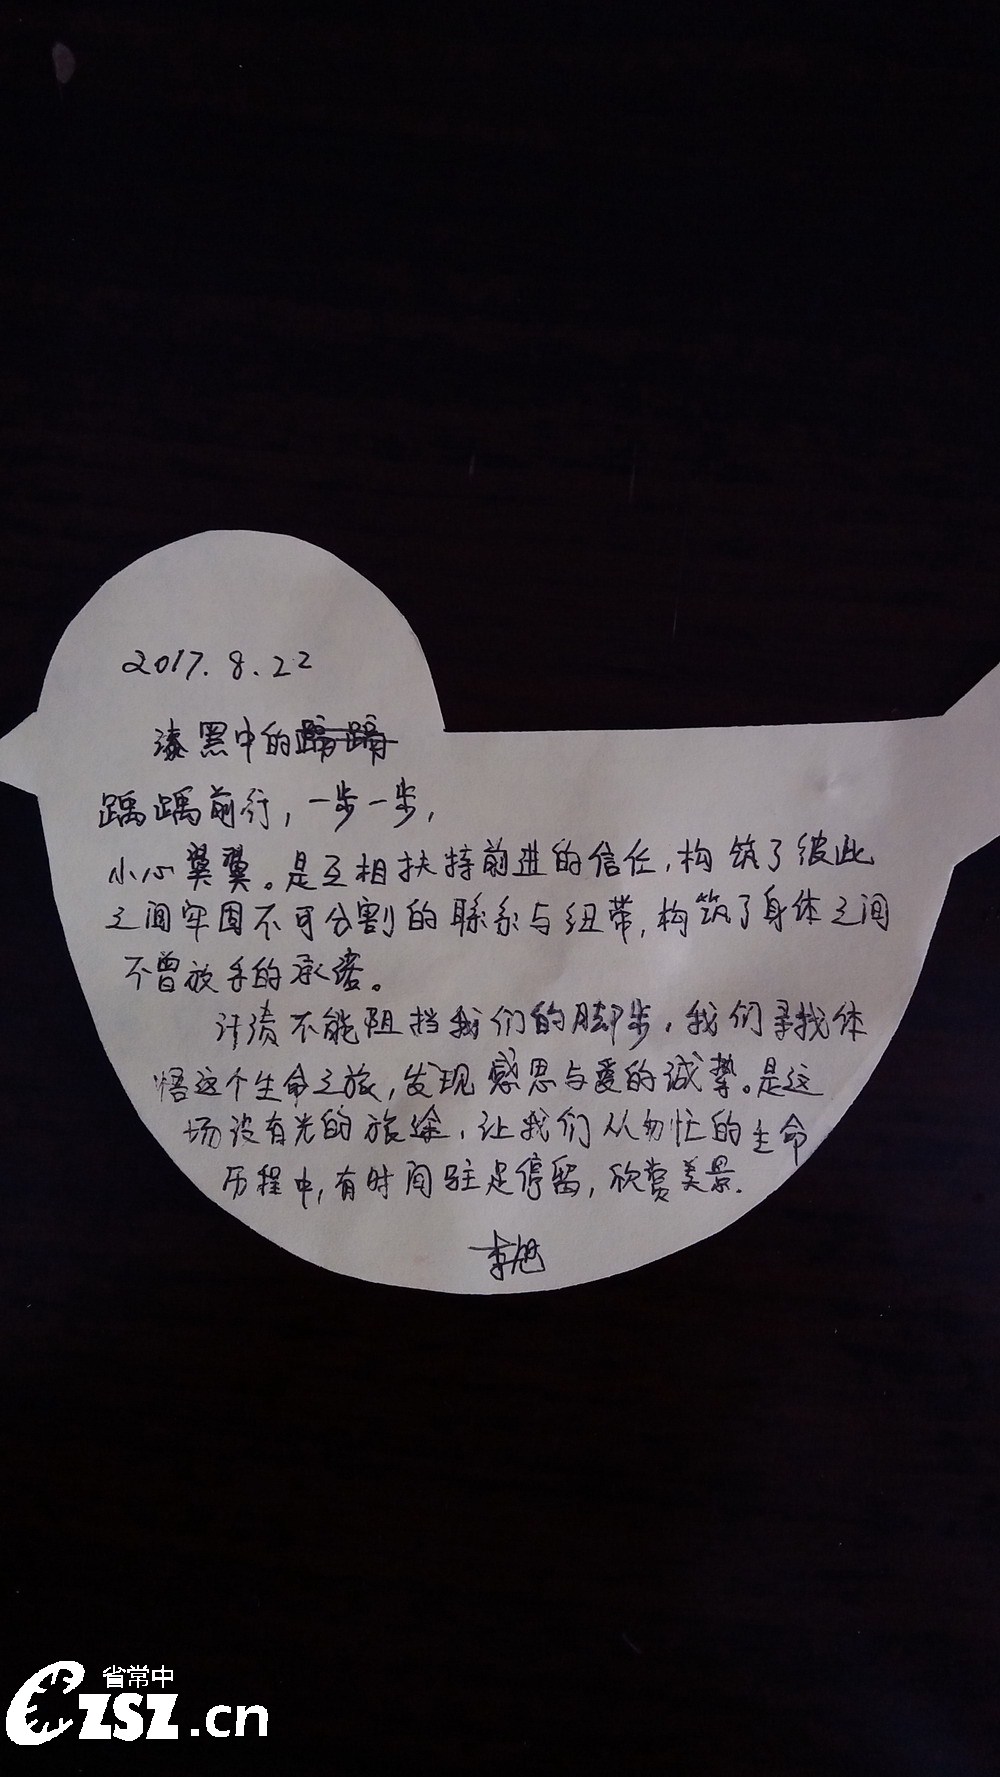 2017.8.22
漆黑中的
踽踽前行，一步一步，
小心翼翼。是互相扶持前进的信任，构筑了彼此
之间牢固不可分割的联系与纽带，构筑了身体之间
不曾放手的承诺。
不能阻挡我们的脚步，我们寻找体
悟这个生命之旅，发现感恩与爱的诚挚。是这
场没有光的旅途，让我们从匆忙的生命
历程中，有时间驻足停留，欣赏美景.
李旭
省常中
CZSZ.cn